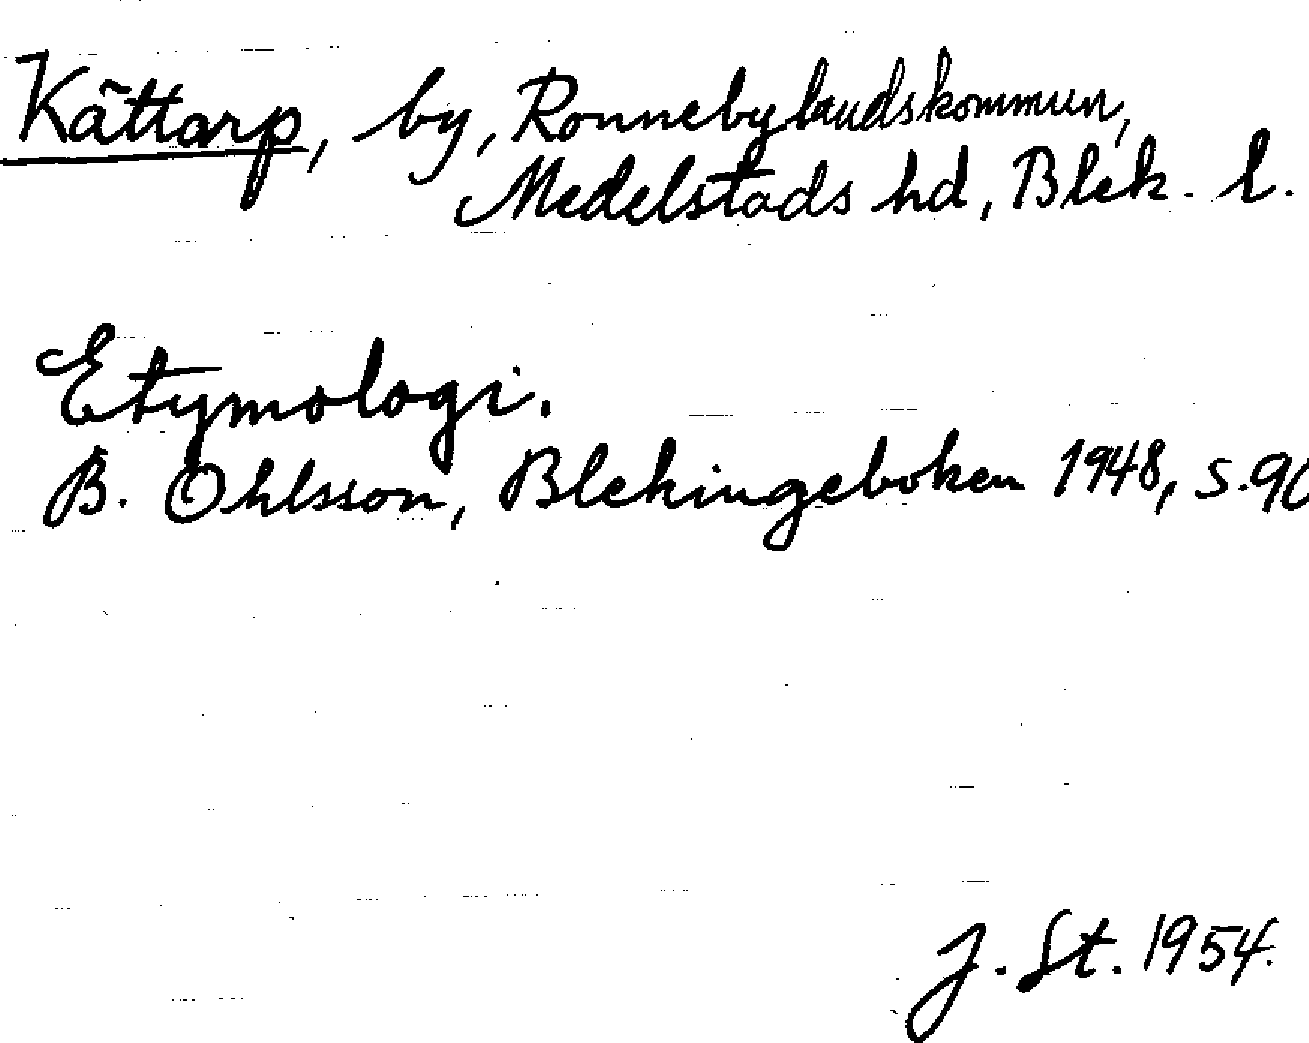 Kättarp, by, Ronneby landskommun,
Medelstads hd, Blek. l.
Etymologi.
B. Ohlsson, Blekingeboken 1948, s. 90
J. St. 1954.